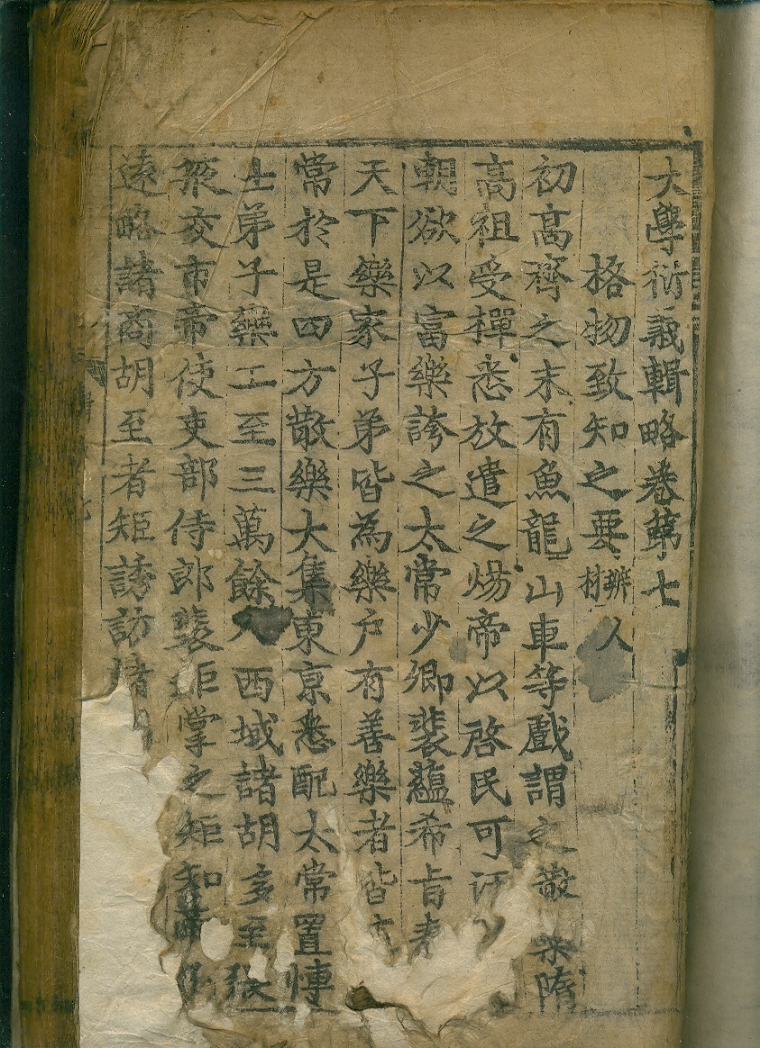 大學衍義輯略卷第七
格物致知之要 辨人材
初高齊之末有魚龍山車等戲謂之散樂隋
高祖受禪悉放遣之煬帝以啓民可
朝欲以富樂誇之太常少卿裴蘊希旨
天下樂家子弟皆為樂户有善樂者皆
常於是四方散樂大集東京悉配太常置博
士弟子樂工至三萬餘人西域諸胡多至張
掖交市帝使吏部侍郎裴矩掌之矩知帝
遠略諸商胡至者矩誘訪諸